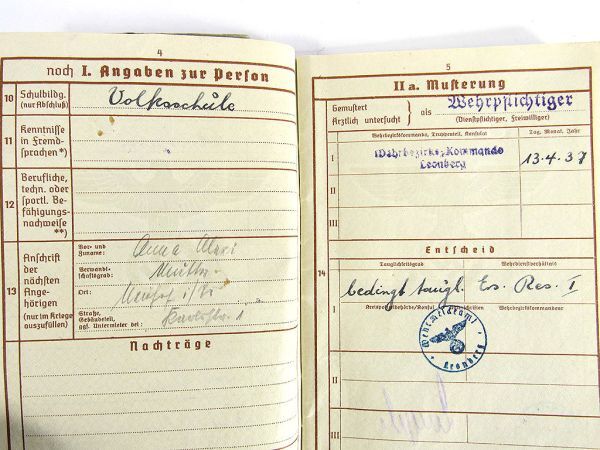 4
noch I. Angaben zur Person
10 Schulbildg. (nur Abschluß)
Volksschule
11 Kenntnisse in Fremdsprachen *)
12 Berufliche, techn. oder sportl. Befähigungsnachweise **)
13 Anschrift der nächsten Angehörigen (nur im Kriege auszufüllen)
Vor- und Zuname: Anna
Verwandtschaftsgrad: Mutter
Ort:
Straße, Gebäudeteil, ggf. Untermieter bei: 1
Nachträge
5
II a. Musterung
Gemustert
Ärztlich untersucht } als Wehrpflichtiger
(Dienstpflichtiger, Freiwilliger)
Wehrbezirkskommando, Truppenteil, Konsulat
Tag, Monat, Jahr
I Wehrbezirks-Kommando
Leonberg
13.4.37
II
III
Entscheid
14
Tauglichkeitsgrad
Wehrdienstverhältnis
I bedingt taugl. Es. Res. I
Wehrbezirkskommandeur
Wehrmeldeamt
Leonberg
II
III